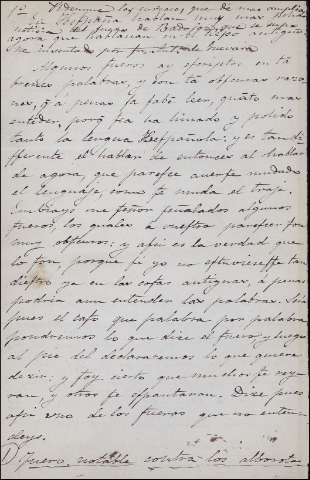 En España hablan muy mas
noticia del fuego de Badajoz
agora que hablauan
Algunos fueros ay escriptos en tã
breues palabras, y con tã obscuras razo-
nes, q̃ a penas se sabē leer, quãto mas
entēder, porq̃ se ha limado y polido
tanto la lengua Hespañola: y es tan di-
fferente el hablar de entonces al hablar
de agora, que paresce auerse mudado
el lenguaje, como se muda el traje.
Embiays me señor señalados algunos
fueros, los quales a vuestro parescer son
muy obscuros: y assi es la verdad que
lo son, porque si yo no estuuiesse tan
diestro ya en las cosas antiguas, a penas
podria aun entender las palabras.
pues el caso que palabra por palabra
pondremos lo que dize el fuero y luego
al pie del declararemos lo que quiere
dezir: y soy cierto que muchos se rey-
ran, y otros se espantaran. Dize pues
assi vno de los fueros que no enten-
deys.
Fuero notable contra los alborota-